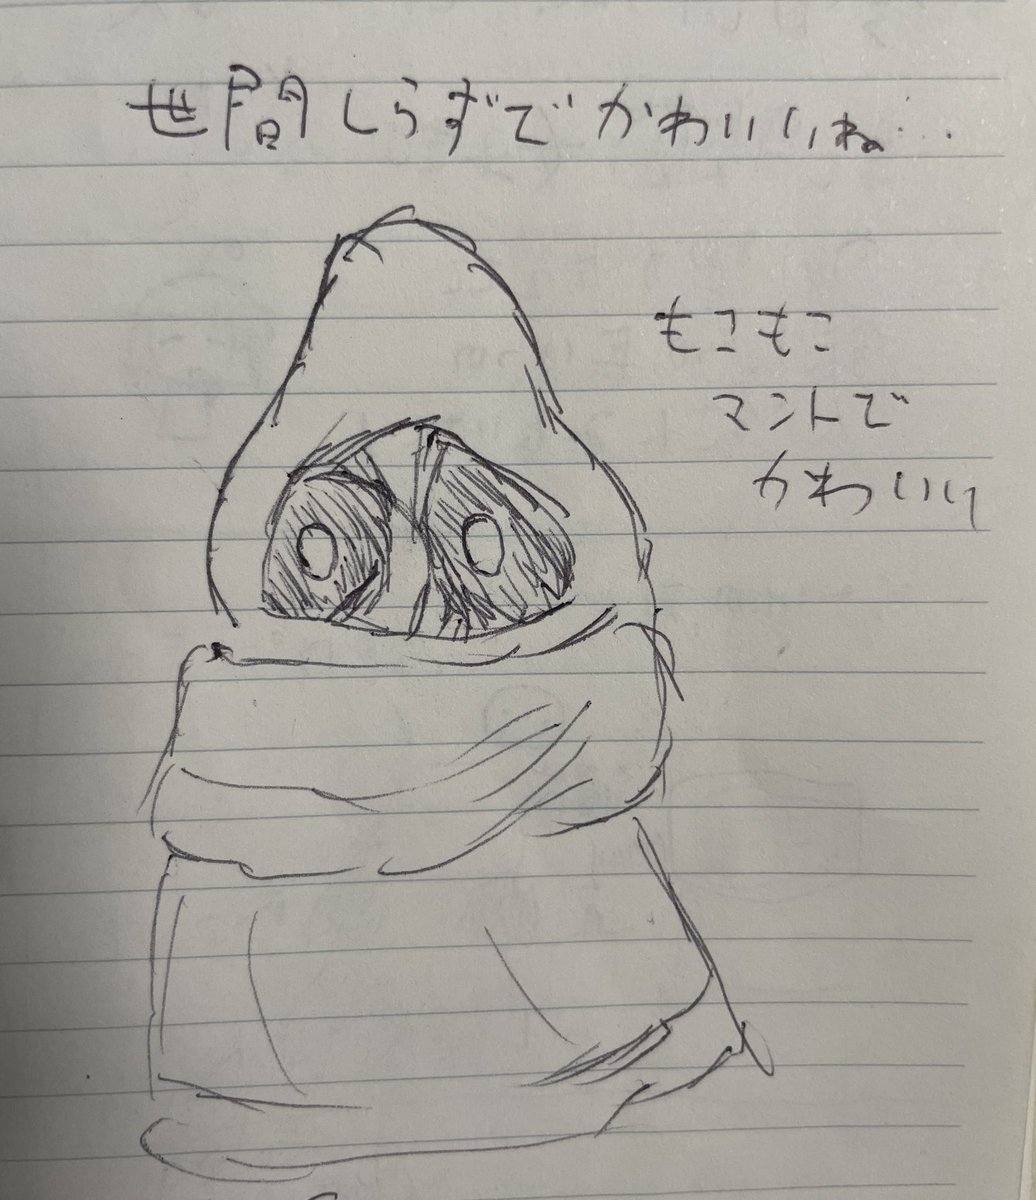 世間しらずでかわいいね…
もこもこ
マントで
かわいい